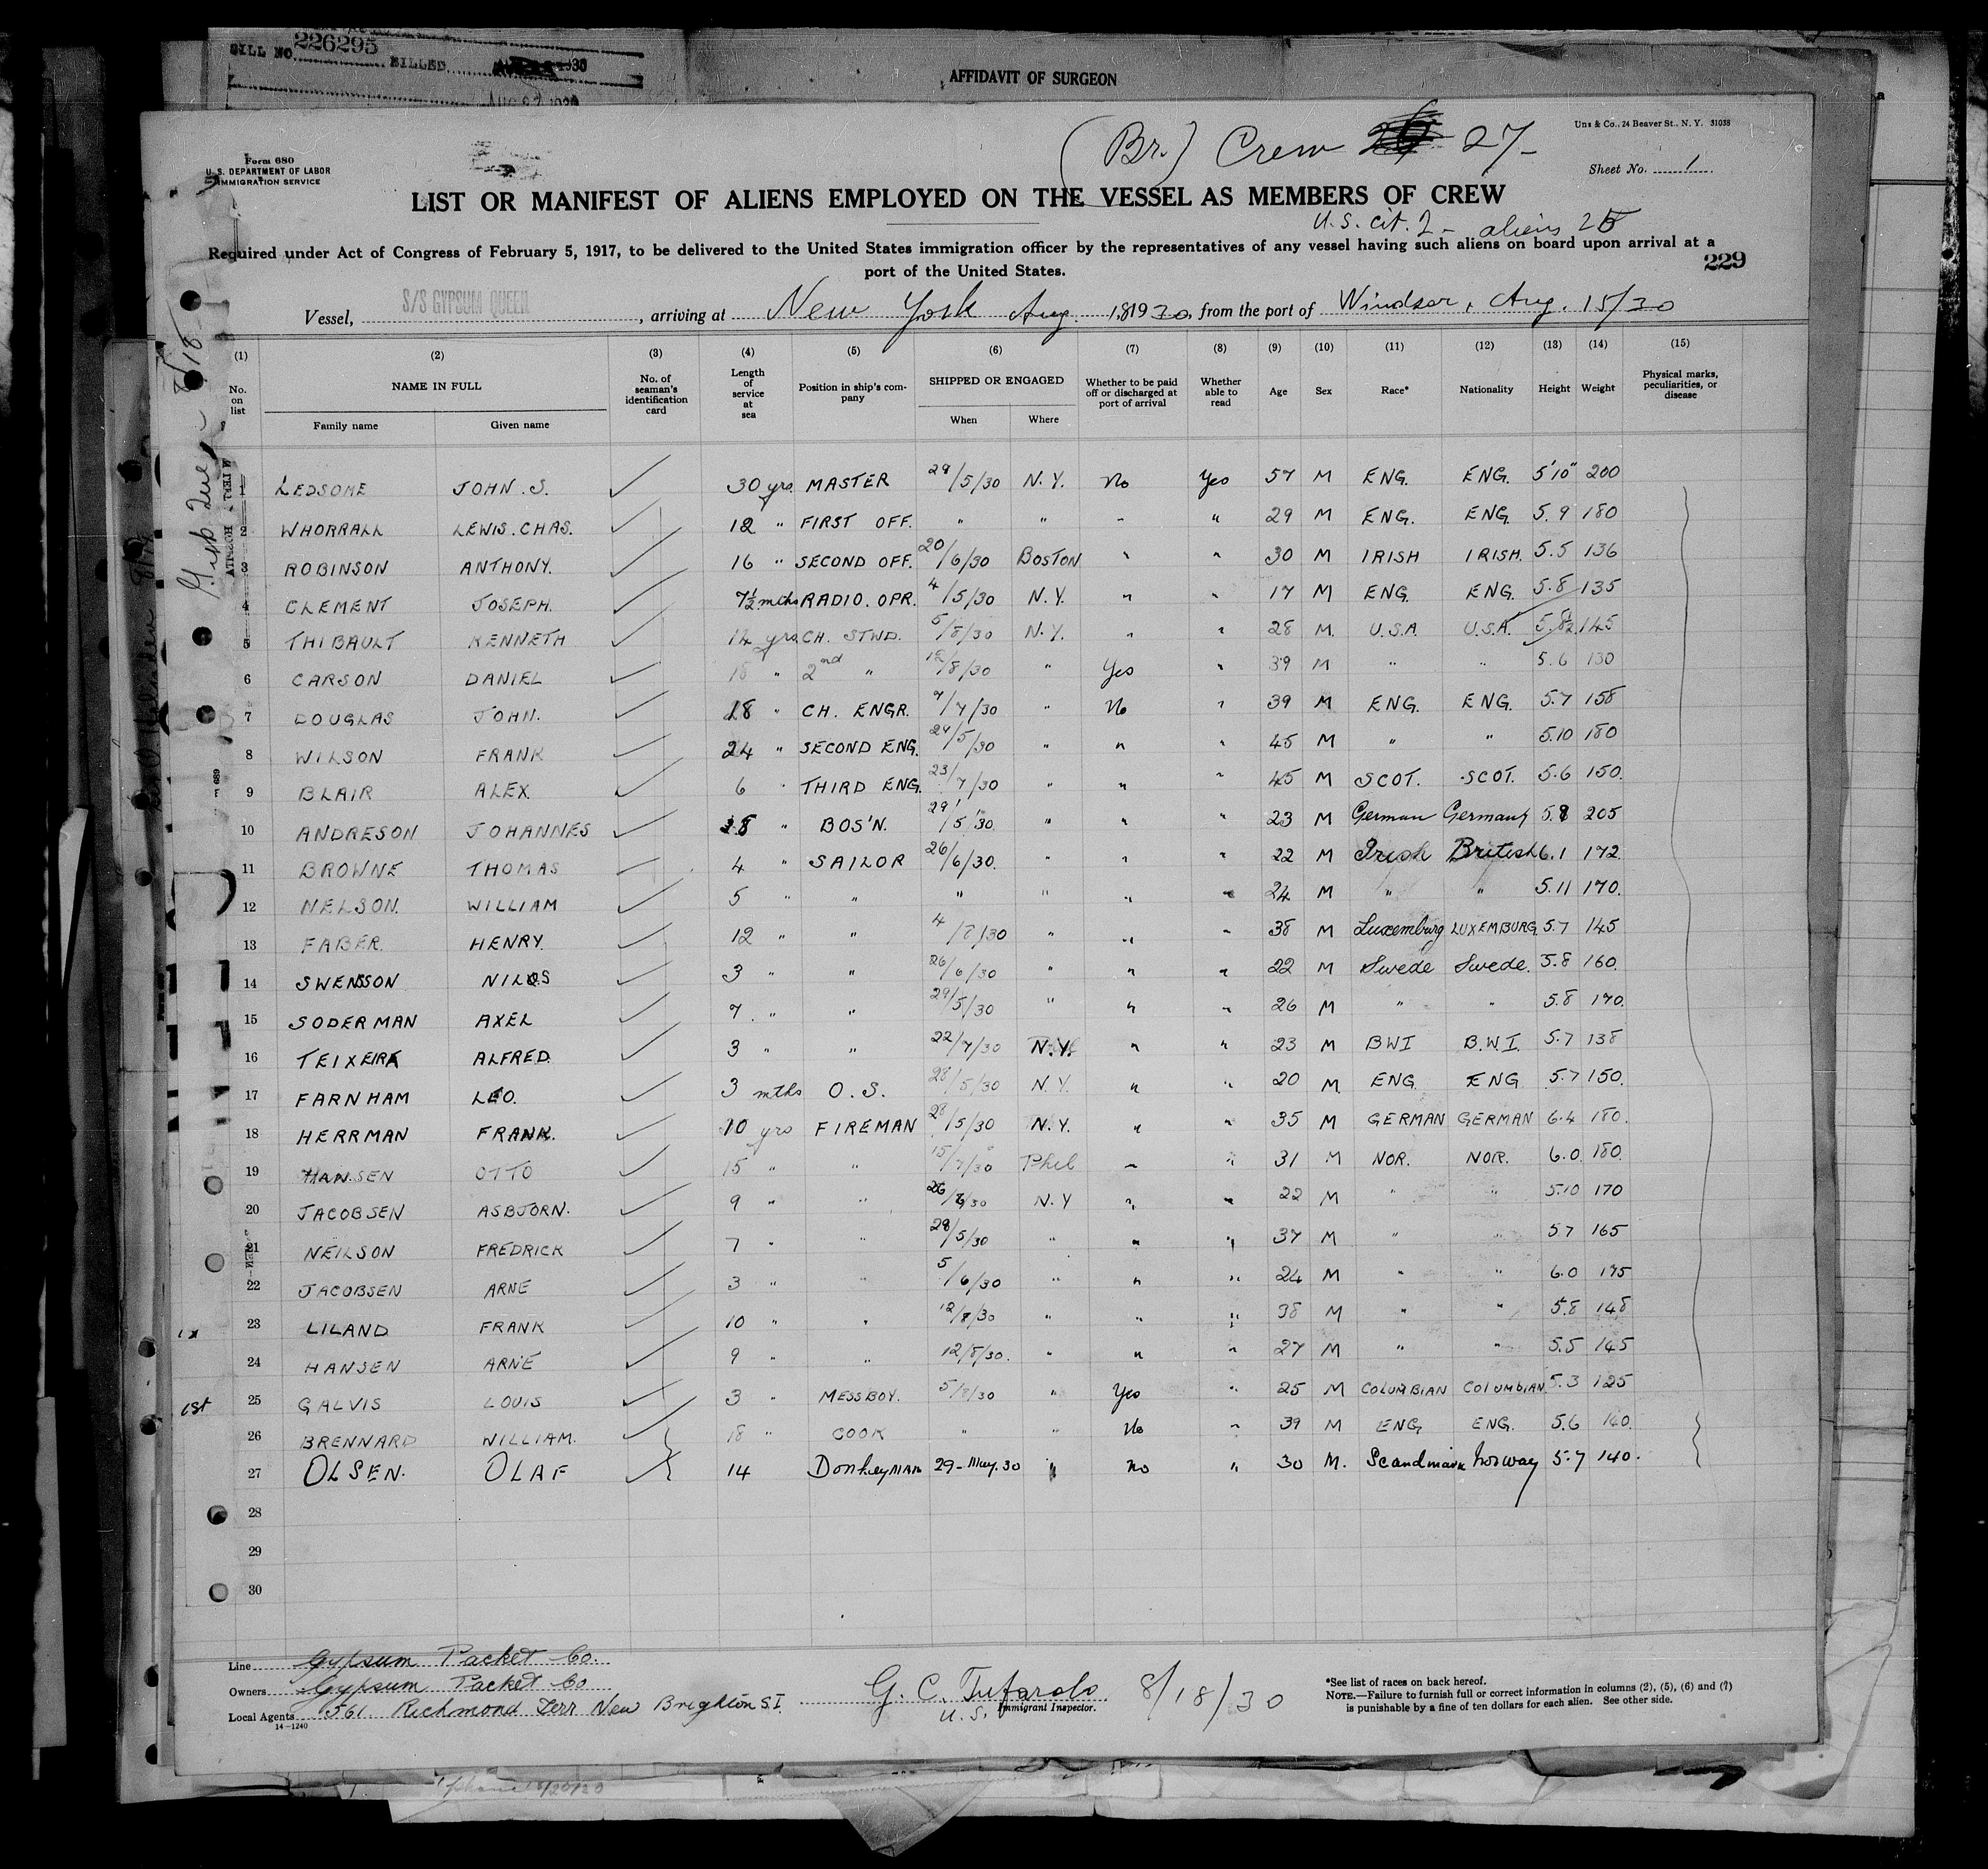 BILL NO. 226295 BILLED 1930
AFFIDAVIT OF SURGEON
Uns & Co., 24 Beaver St., N. Y. 31038
(Br.) Crew 27-
Form 680
U. S. DEPARTMENT OF LABOR
IMMIGRATION SERVICE
Sheet No. 1
LIST OR MANIFEST OF ALIENS EMPLOYED ON THE VESSEL AS MEMBERS OF CREW
U.S. cit. 2 - aliens 25
Required under Act of Congress of February 5, 1917, to be delivered to the United States immigration officer by the representatives of any vessel having such aliens on board upon arrival at a
port of the United States.
229
Vessel, S/S GYPSUM QUEEN, arriving at New York Aug. 18 1930, from the port of Windsor, Aug. 15/30
(1) (2) (3) (4) (5) (6) (7) (8) (9) (10) (11) (12) (13) (14) (15)
No. on list NAME IN FULL Family name Given name No. of seaman's identification card Length of service at sea Position in ship's company SHIPPED OR ENGAGED When Where Whether to be paid off or discharged at port of arrival Whether able to read Age Sex Race* Nationality Height Weight Physical marks, peculiarities, or disease
1 LEDSOME JOHN. S. 30 yrs MASTER 29/5/30 N.Y. No Yes 57 M ENG. ENG. 5'10" 200
2 WHORRALL LEWIS. CHAS. 12 " FIRST OFF. " " " " 29 M ENG. ENG. 5.9 180
3 ROBINSON ANTHONY. 16 " SECOND OFF. 20/6/30 BOSTON " " 30 M IRISH IRISH. 5.5 136
4 CLEMENT JOSEPH. 7½ mths RADIO. OPR. 4/5/30 N.Y. " " 17 M ENG. ENG. 5.8 135
5 THIBAULT KENNETH 14 yrs CH. STWD. 5/8/30 N.Y. " " 28 M. U.S.A. U.S.A. 5.8½ 145
6 CARSON DANIEL 18 " 2nd " 12/8/30 " Yes " 39 M " " 5.6 130
7 DOUGLAS JOHN. 18 " CH. ENGR. 7/7/30 " No " 39 M ENG. ENG. 5.7 158
8 WILSON FRANK 24 " SECOND ENG. 29/5/30 " " " 45 M " " 5.10 180
9 BLAIR ALEX. 6 " THIRD ENG. 23/7/30 " " " 45 M SCOT. SCOT. 5.6 150.
10 ANDRESON JOHANNES 28 " BOS'N. 29/5/30. " " " 23 M German Germany 5.8 205
11 BROWNE THOMAS 4 " SAILOR 26/6/30. " " " 22 M Irish British 6.1 172
12 NELSON. WILLIAM 5 " " " " " " 24 M " " 5.11 170.
13 FABER. HENRY. 12 " " 4/8/30 " " " 38 M Luxemburg LUXEMBURG 5.7 145
14 SWENSSON NILS 3 " " 26/6/30 " " " 22 M Swede Swede. 5.8 160.
15 SODERMAN AXEL 7 " " 29/5/30 " " " 26 M " " 5.8 170.
16 TEIXEIRA ALFRED. 3 " " 22/7/30 N.Y. " " 23 M BWI B.W.I. 5.7 138
17 FARNHAM LEO. 3 mths O.S. 28/5/30 N.Y. " " 20 M. ENG. ENG 5.7 150.
18 HERRMAN FRANK. 10 yrs FIREMAN 28/5/30 N.Y. " " 35 M GERMAN GERMAN 6.4 180.
19 HANSEN OTTO 15 " " 15/7/30 Phil " " 31 M NOR. NOR. 6.0 180.
20 JACOBSEN ASBJORN. 9 " " 26/6/30 N.Y " " 22 M " " 5.10 170
21 NEILSON FREDRICK 7 " " 29/5/30 " " " 37 M " " 5.7 165
22 JACOBSEN ARNE 3 " " 5/6/30 " " " 24 M " " 6.0 175
23 LILAND FRANK 10 " " 12/8/30 " " " 38 M " " 5.8 148
24 HANSEN ARNE 9 " " 12/8/30. " " " 27 M " " 5.5 145
25 GALVIS LOUIS 3 " MESSBOY. 5/8/30 " Yes " 25 M COLUMBIAN COLUMBIAN 5.3 125
26 BRENNARD WILLIAM. 18 " COOK " " No " 39 M ENG ENG. 5.6 140.
27 OLSEN. OLAF 14 DonkeyMAN 29-May.30 " no " 30 M. Scandinavn Norway 5.7 140.
28
29
30
Line Gypsum Packet Co.
Owners Gypsum Packet Co
Local Agents 561 Richmond Terr New Brighton S.I.
14-1240
G. C. Tufarolo 8/18/30
U.S. Immigrant Inspector.
*See list of races on back hereof.
NOTE.—Failure to furnish full or correct information in columns (2), (5), (6) and (7)
is punishable by a fine of ten dollars for each alien. See other side.